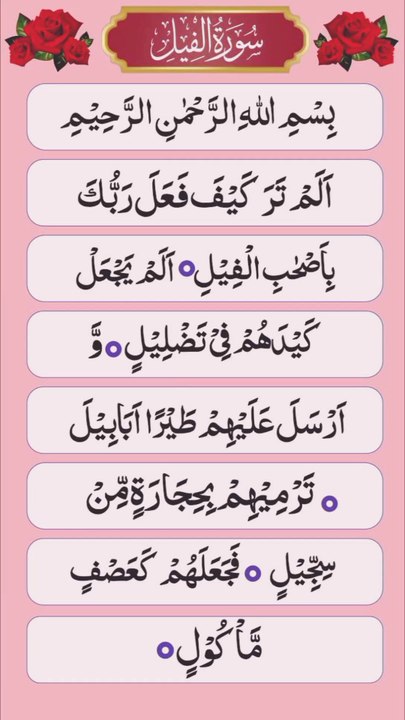 سُوْرَةُ الْفِيْلِ
بِسْمِ اللهِ الرَّحْمٰنِ الرَّحِيْمِ
اَلَمْ تَرَ كَيْفَ فَعَلَ رَبُّكَ
بِاَصْحٰبِ الْفِيْلِ ○ اَلَمْ يَجْعَلْ
كَيْدَهُمْ فِيْ تَضْلِيْلٍ ○ وَّ
اَرْسَلَ عَلَيْهِمْ طَيْرًا اَبَابِيْلَ
○ تَرْمِيْهِمْ بِحِجَارَةٍ مِّنْ
سِجِّيْلٍ ○ فَجَعَلَهُمْ كَعَصْفٍ
مَّاْكُوْلٍ ○